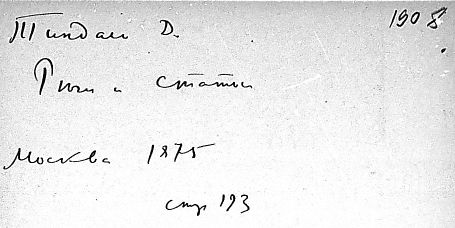 1908.
Тиндаль Д.
Речи и статьи
Москва 1875
стр 193